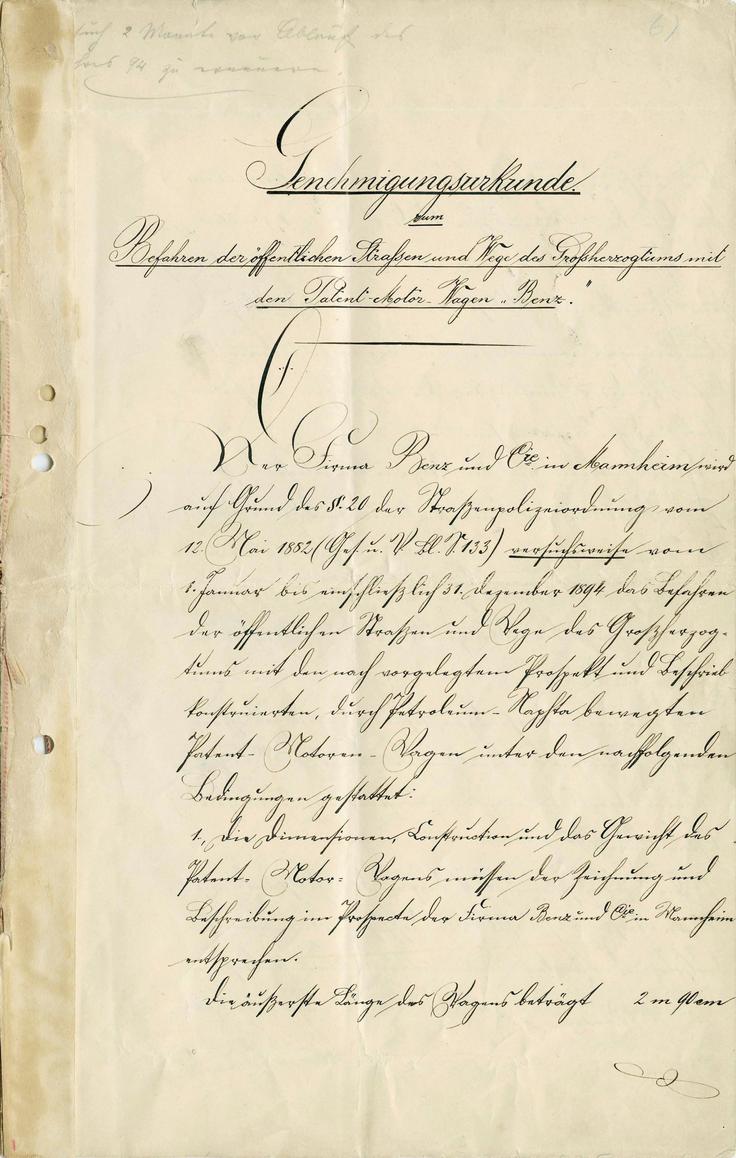 2 Monate vor Ablauf des
94 zu erneuern.
6)
Genehmigungsurkunde.
zum
Befahren der öffentlichen Strassen und Wege des Großherzogtums mit
den Patent-Motor-Wagen „Benz."
Der Firma Benz und Cie. in Mannheim, wird
auf Grund des §. 20 der Straßenpolizeiordnung vom
12. Mai 1882 (Ges. u. V. Bl. S. 133) versuchsweise vom
1. Januar bis einschließlich 31. Dezember 1894 das Befahren
der öffentlichen Straßen und Wege des Großherzog-
tums mit den nach vorgelegtem Prospekt und Beschrieb
konstruierten, durch Petroleum-Naphta bewegten
Patent-Motoren-Wagen unter den nachfolgenden
Bedingungen gestattet:
1., Die Dimensionen, Construction und das Gewicht des
Patent-Motor-Wagens müssen der Zeichnung und
Beschreibung im Prospecte der Firma Benz und Cie. in Mannheim
entsprechen.
Die äußerste Länge des Wagens beträgt 2 m 90 cm